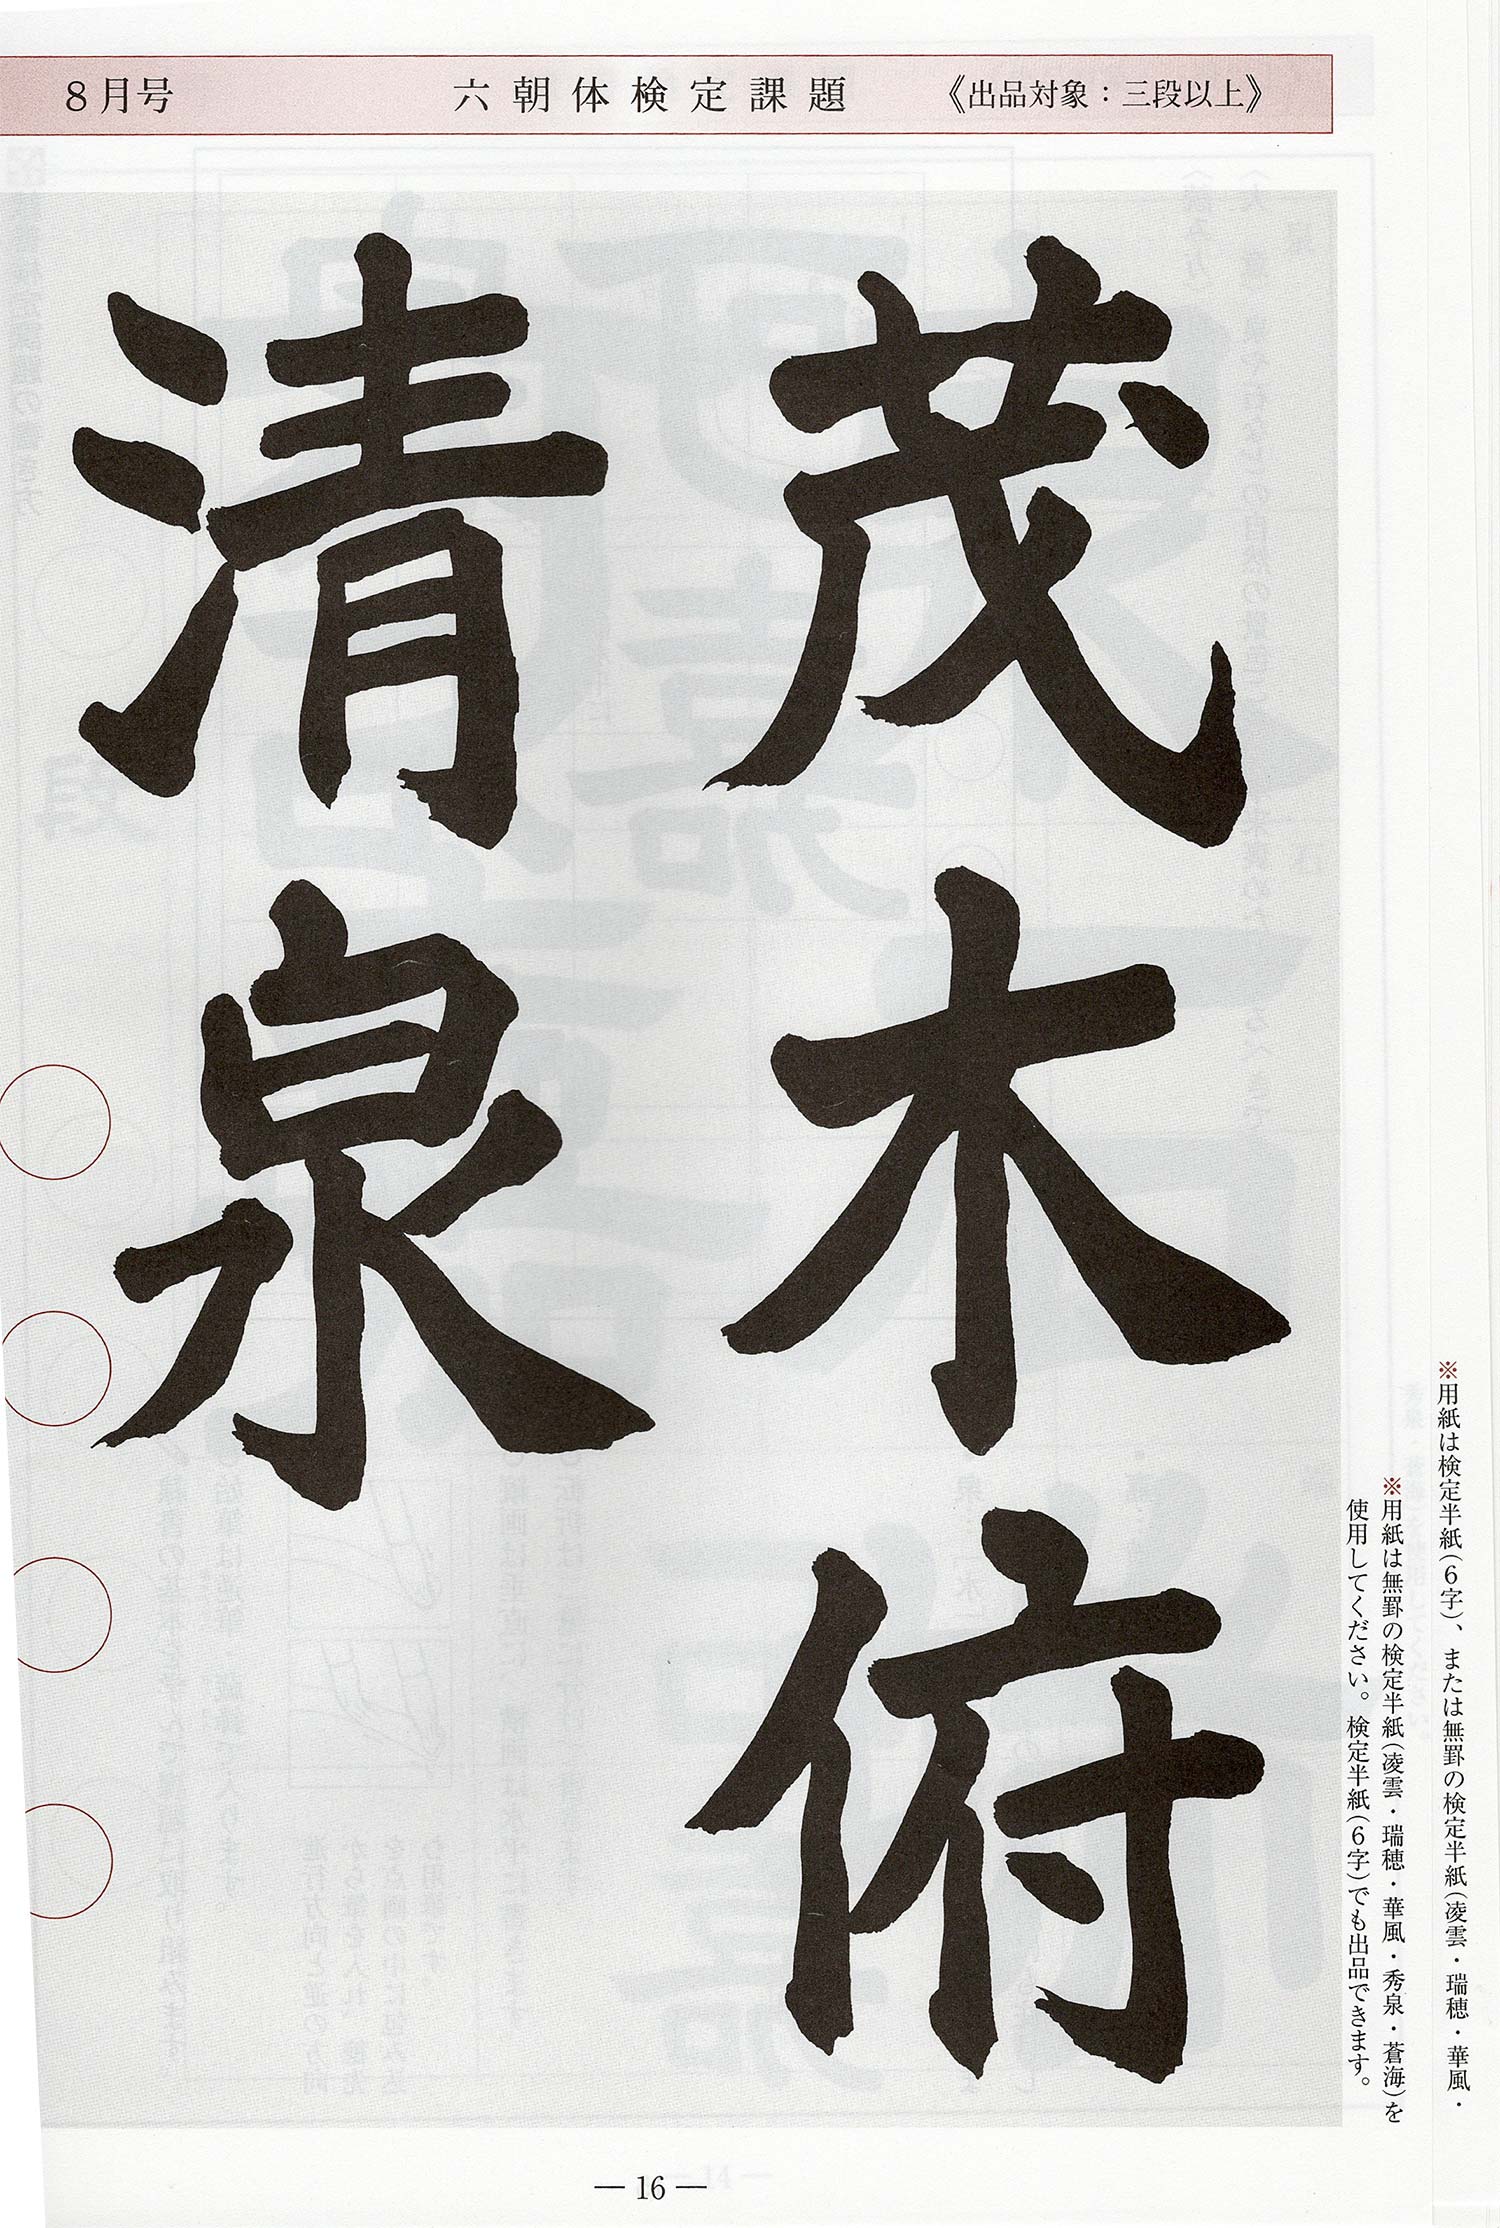 8月号 六朝体検定課題 《出品対象：三段以上》
茂木俯
清泉
※用紙は検定半紙（6字）、または無罫の検定半紙（凌雲・瑞穂・華風・
※用紙は無罫の検定半紙（凌雲・瑞穂・華風・秀泉・蒼海）を
使用してください。検定半紙（6字）でも出品できます。
— 16 —